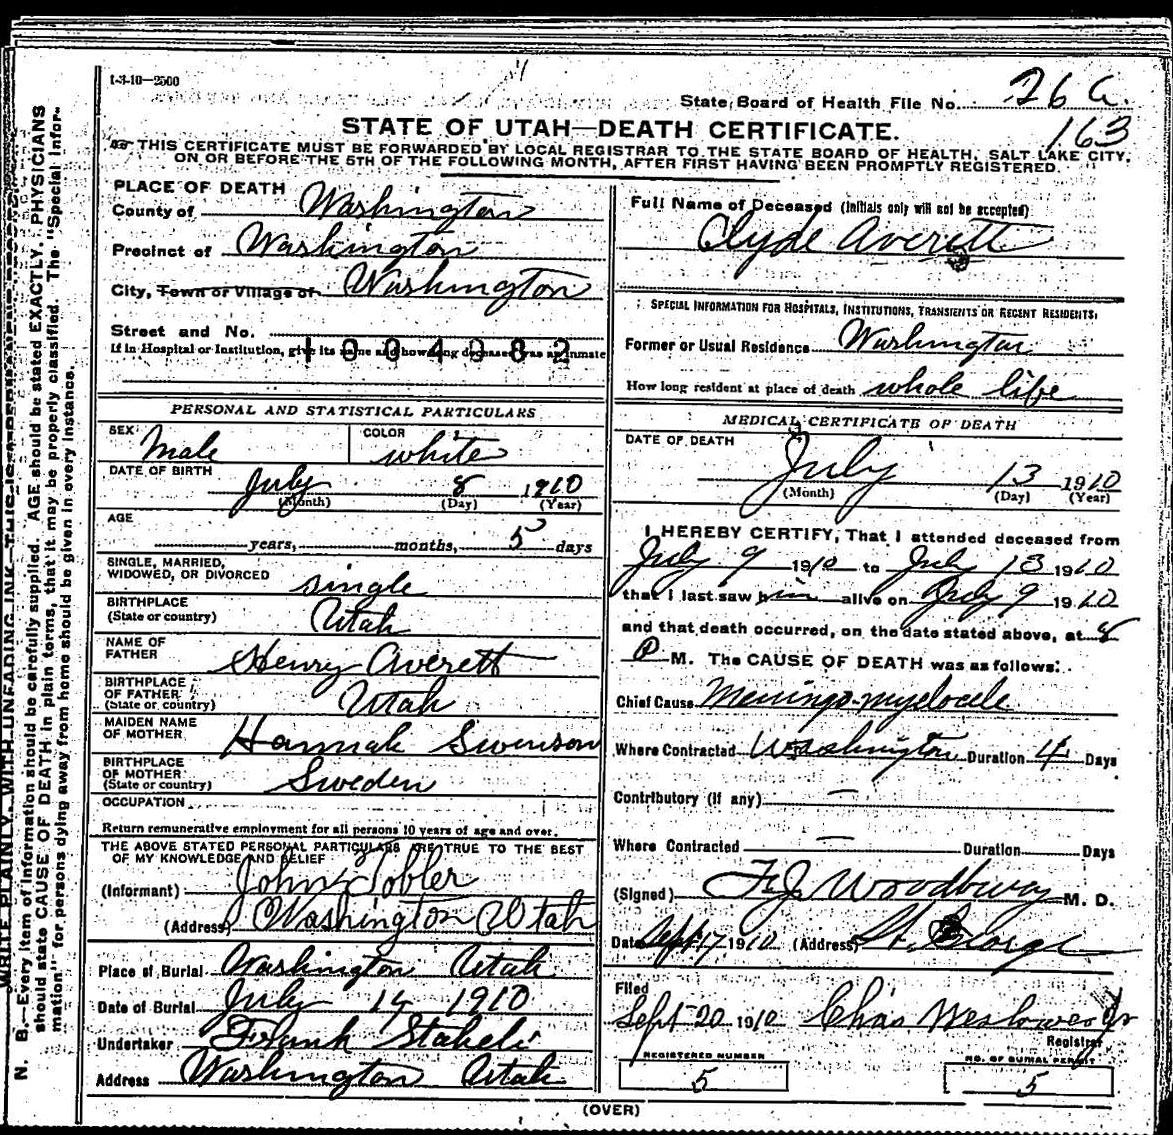 1-3-10—2500
State Board of Health File No. 26 a.
163
STATE OF UTAH—DEATH CERTIFICATE.
THIS CERTIFICATE MUST BE FORWARDED BY LOCAL REGISTRAR TO THE STATE BOARD OF HEALTH, SALT LAKE CITY,
ON OR BEFORE THE 5TH OF THE FOLLOWING MONTH, AFTER FIRST HAVING BEEN PROMPTLY REGISTERED.
PLACE OF DEATH
County of Washington
Precinct of Washington
City, Town or Village of Washington
Street and No.
If in Hospital or Institution, give its name and how long deceased was an inmate
1004082
PERSONAL AND STATISTICAL PARTICULARS
SEX Male COLOR white
DATE OF BIRTH July 8 1910
(Month) (Day) (Year)
AGE
years, months, 5 days
SINGLE, MARRIED,
WIDOWED, OR DIVORCED single
BIRTHPLACE
(State or country) Utah
NAME OF
FATHER Henry Averett
BIRTHPLACE
OF FATHER
(State or country) Utah
MAIDEN NAME
OF MOTHER Hannah Swenson
BIRTHPLACE
OF MOTHER
(State or country) Sweden
OCCUPATION
Return remunerative employment for all persons 10 years of age and over.
THE ABOVE STATED PERSONAL PARTICULARS ARE TRUE TO THE BEST
OF MY KNOWLEDGE AND BELIEF
(Informant) John Tobler
(Address) Washington Utah
Place of Burial Washington Utah
Date of Burial July 14 1910
Undertaker Frank Staheli
Address Washington Utah
Full Name of Deceased (Initials only will not be accepted)
Clyde Averett
SPECIAL INFORMATION FOR HOSPITALS, INSTITUTIONS, TRANSIENTS OR RECENT RESIDENTS:
Former or Usual Residence Washington
How long resident at place of death whole life
MEDICAL CERTIFICATE OF DEATH
DATE OF DEATH
July 13 1910
(Month) (Day) (Year)
I HEREBY CERTIFY, That I attended deceased from
July 9 1910 to July 13 1910
that I last saw him alive on July 9 1910
and that death occurred, on the date stated above, at 8
P M. The CAUSE OF DEATH was as follows:
Chief Cause Meningo-myelocele
Where Contracted Washington Duration 4 Days
Contributory (if any) —
Where Contracted — Duration Days
(Signed) F. J. Woodbury M. D.
Date Sept 17 1910 (Address) St. George
Filed
Sept 20 1910 Chas Registrar
REGISTERED NUMBER
5
NO. OF BURIAL PERMIT
5
(OVER)
WRITE PLAINLY, WITH UNFADING INK—THIS IS A PERMANENT RECORD.
N. B.—Every item of information should be carefully supplied. AGE should be stated EXACTLY. PHYSICIANS
should state CAUSE OF DEATH in plain terms, that it may be properly classified. The "Special Infor-
mation" for persons dying away from home should be given in every instance.